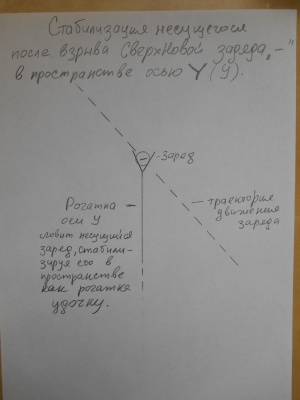 Стабилизация несущегося
после взрыва Сверхновой заряда,„–"
в пространстве осью Y (У).
–
-Заряд
Рогатка –
оси У
ловит несущийся
заряд, стабили-
зируя его в
пространстве
как рогатка
удочку.
– траектория
движения
заряда